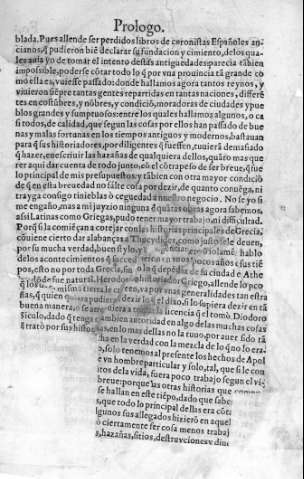 Prologo.
blada. Pues allende ser perdidos libros de coronistas Españoles an-
cianos, q̃ pudieron biẽ declarar su fundacion y cimiento, de los qua-
les auia yo de tomar el intento destas antiguedades parecia tãbien
impossible, poderse cõtar todo lo q̃ por vna prouincia tã grande co
mo esta es, vuiesse passado: donde hallamos agora tantos reynos, y
vinieron siẽpre tantas gentes repartidas en tantas naciones, differẽ
tes en costũbres, y nõbres, y condiciõ, moradoras de ciudades y pue
blos grandes y sumptuosos: entre los quales hallamos algunos, o ca
si todos, de calidad, que segun las cosas por ellos han passado de bue
nas y malas fortunas en los tiempos antiguos y modernos, bastauan
para q̃ sus historiadores, por diligentes q̃ fuessen, tuuierã demasiado
q̃ hazer, en escriuir las hazañas de qualquiera dellos, quãto mas que
rer aqui dar cuenta de todo junto, cõ el cõtrapeso de ser breue, q̃ fue
lo principal de mis presupuestos, y tãbien con otra mayor condiciõ
de q̃ en esta breuedad no falte cosa por dezir, de quanto conuẽga, ni
trayga consigo tinieblas o ceguedad a negocio. No se yo si
me engaño, mas a mi juyzio ninguna quãtas agora sabemos,
assi Latinas como Griegas, pudo tener mayor trabajo, ni difficultad.
Porq̃ si la comiẽçan a cotejar con las historias principales de Grecia,
cõuiene cierto dar alabanças a Thucydides, como justo se le deuen,
por su mucha verdad, buen stylo, y hablo
delos acontecimientos q̃ en vnos pocos años
pos, esto no por toda Grecia, de su ciudad
Herodoto Griego, allende lo
tierra generalidades tan
quien pudiera dezir lo q̃ dixo, si lo supiera dezir en
buena manera, licencia q̃ el tomò. Diodoro
Siculo, dado q̃ tenga tambien autoridad en algo de las muchas cosas
q̃ trato por sus en lo mas dellas no la tuuo, por auer sido
en la verdad con la mezcla de lo q̃ no lo era
solo tenemos al presente los hechos de
vn hombre particular y solo, tal, que si le con
dela vida, fuera poco trabajo segun el
breue: porque las otras historias que
se hallan en este tiẽpo, dado que
que todo lo principal dellas era
algunos sus allegados hizierõ en aquel
cierto ser cosa menos
hazañas, sitios, destruyciones